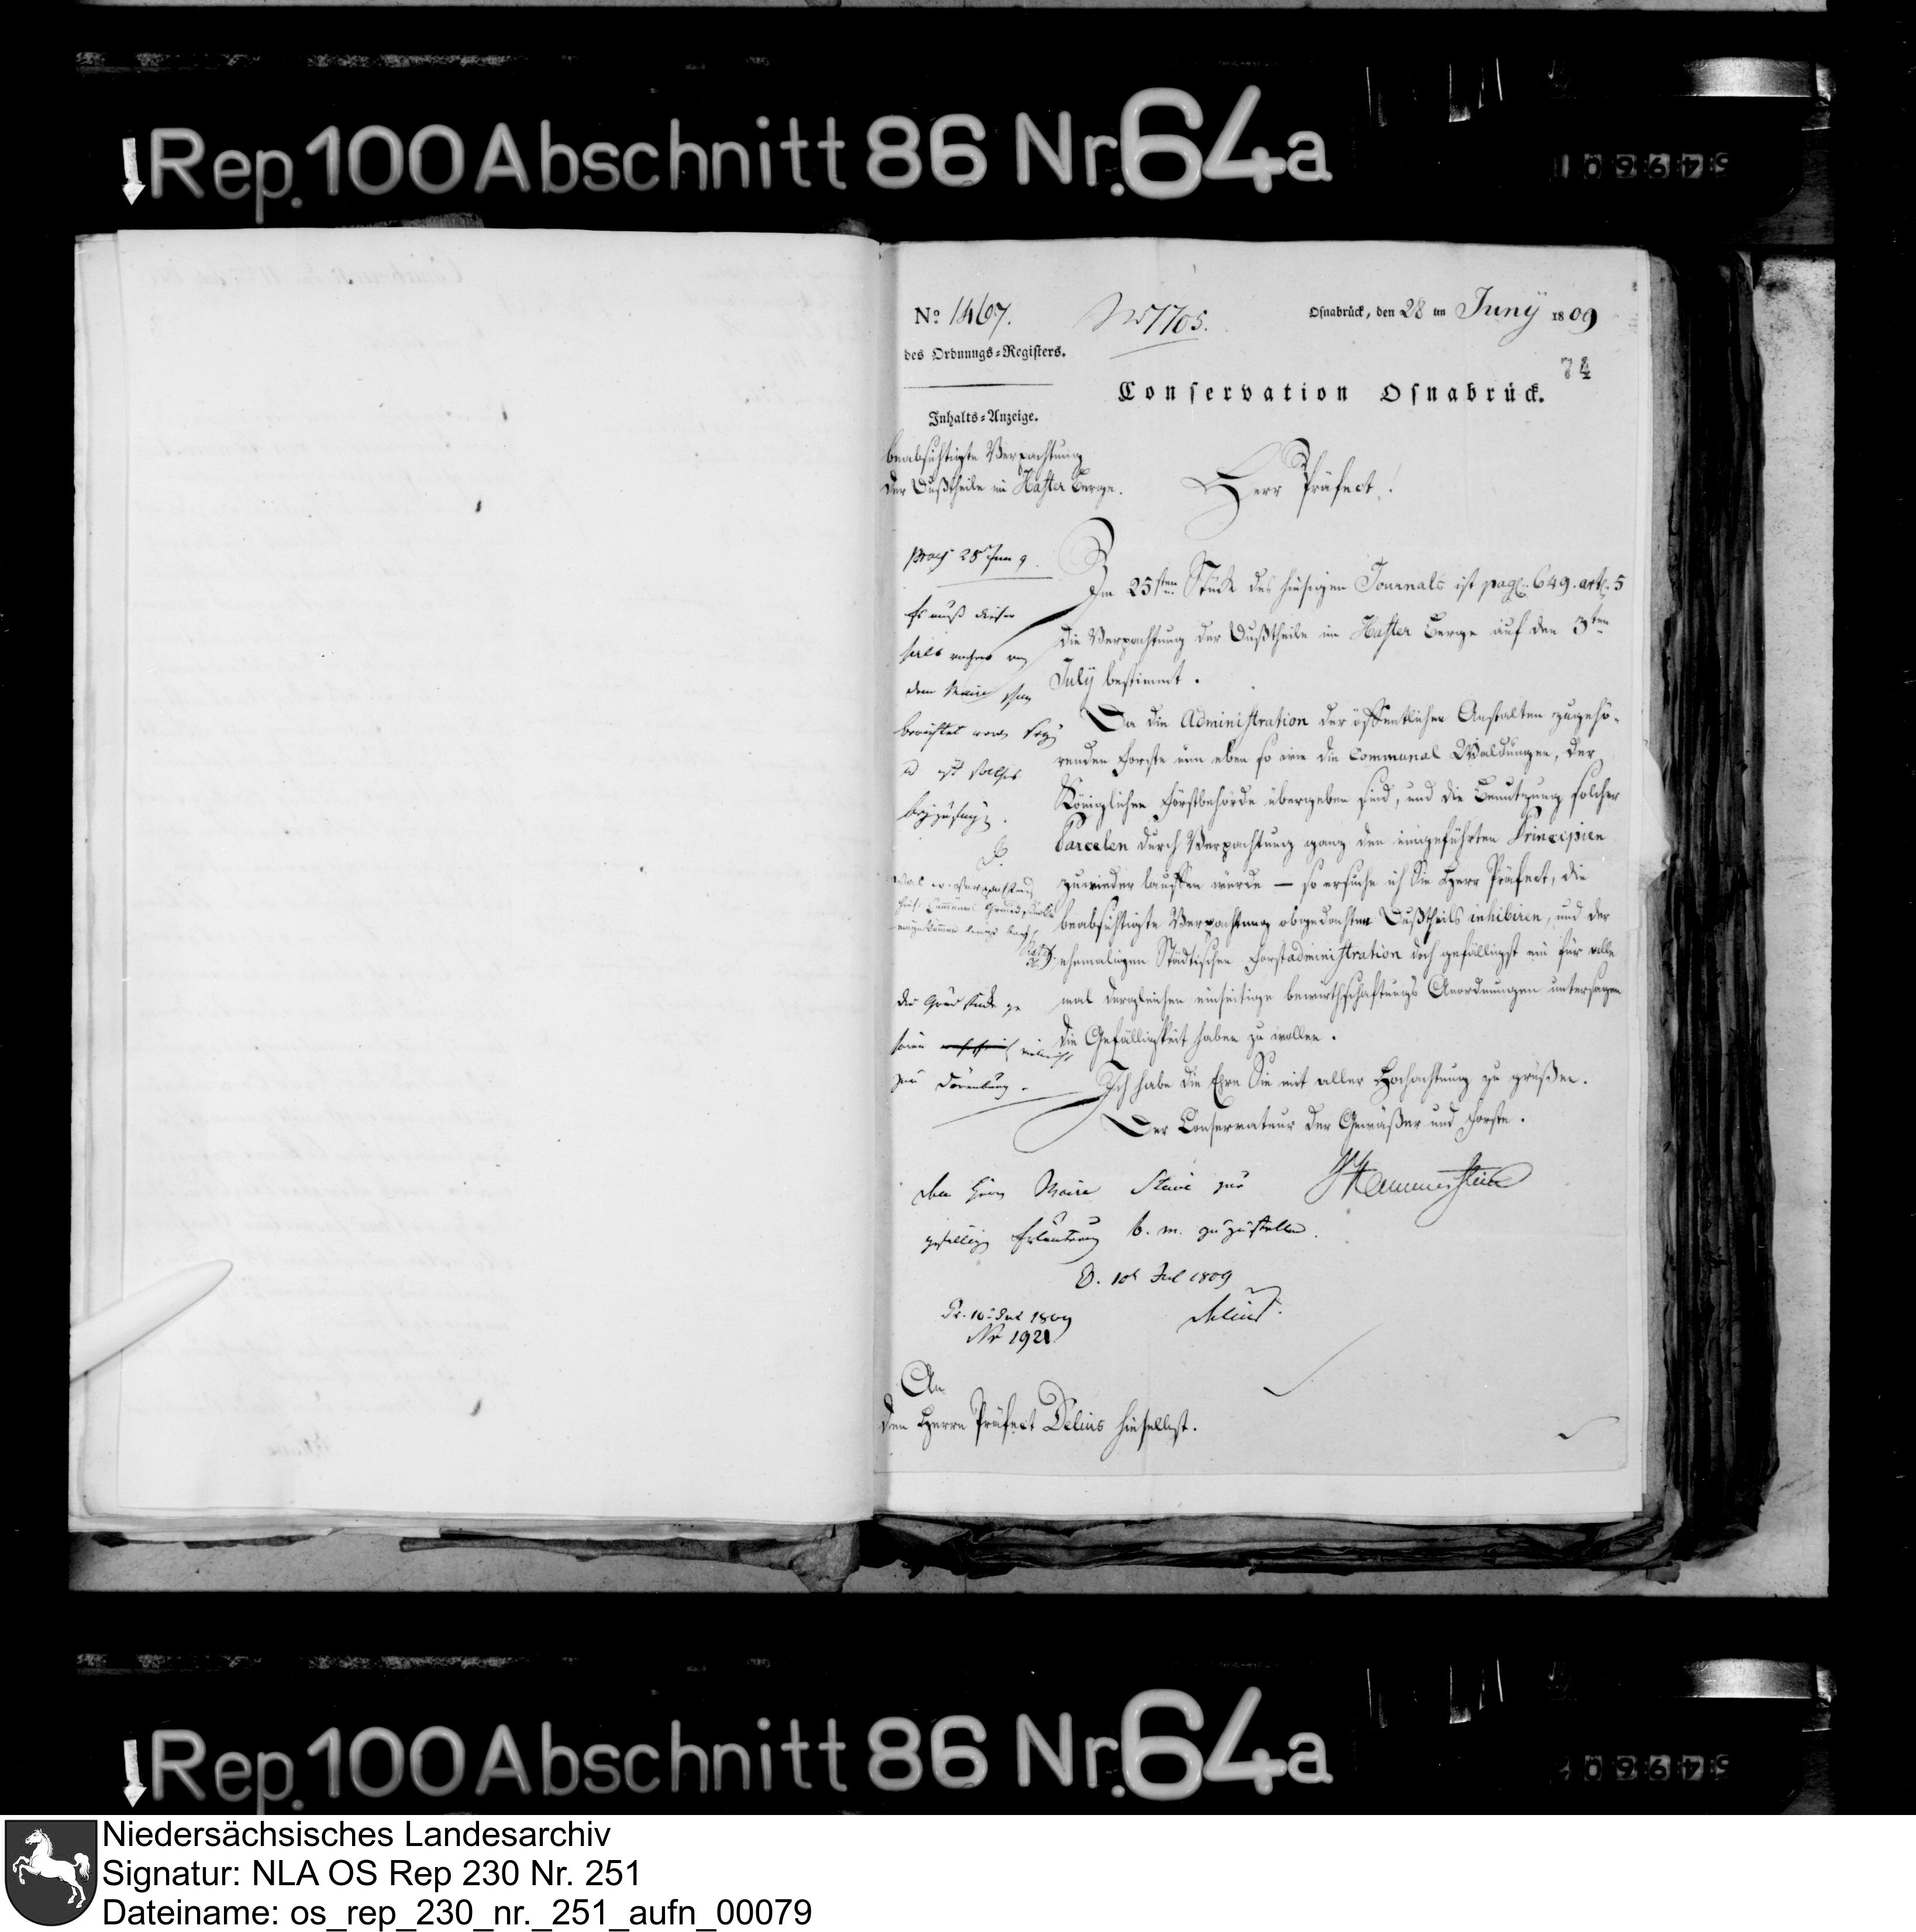 Rep. 100 Abschnitt 86 Nr. 64a
No 1467.
No 1705.
Osnabrück, den 28 ten Juny 1809
des Ordnungs-Registers.
74
Conservation Osnabrück.
Inhalts-Anzeige.
beabsichtigte Verpachtung
der Dußtheile im Haster Berge.
Herr Präfect!
Im 25sten Stück des hiesigen Journals ist pag. 649. art. 5
die Verpachtung der Dußtheile im Haster Berge auf den 3ten
July bestimmt.
Da die Administration der öffentlichen Anstalten zugehö-
renden Forste nun eben so wie die Communal Waldungen, der
Königlichen Forstbehörde übergeben sind, und die Benutzung solcher
Parcelen durch Verpachtung ganz den eingeführten Principien
zuwieder lauffen würde — so ersuche ich Sie Herr Präfect, die
beabsichtigte Verpachtung obgedachten Dußtheils inhibiren, und der
ehemaligen Städtischen Forstadministration doch gefälligst ein für alle
mal dergleichen einseitige bewirthschaftungs Anordnungen untersagen
die Gefälligkeit haben zu wollen.
Ich habe die Ehre Sie mit aller Hochachtung zu grüßen.
Der Conservateur der Gewäßer und Forste.
Hammerstein
Es muß dieser
dem Maire schon
berichtet
beyzufügen.
Verpachtung
zur
den Herrn Maire Stüve zur
gefälligen Erläuterung b. m. zuzustellen.
O. 10t Jul 1809
Delius.
Pr. 10t Jul 1809
No 1921
An
den Herrn Präfect Delius hieselbst.
Rep. 100 Abschnitt 86 Nr. 64a
Niedersächsisches Landesarchiv
Signatur: NLA OS Rep 230 Nr. 251
Dateiname: os_rep_230_nr._251_aufn_00079